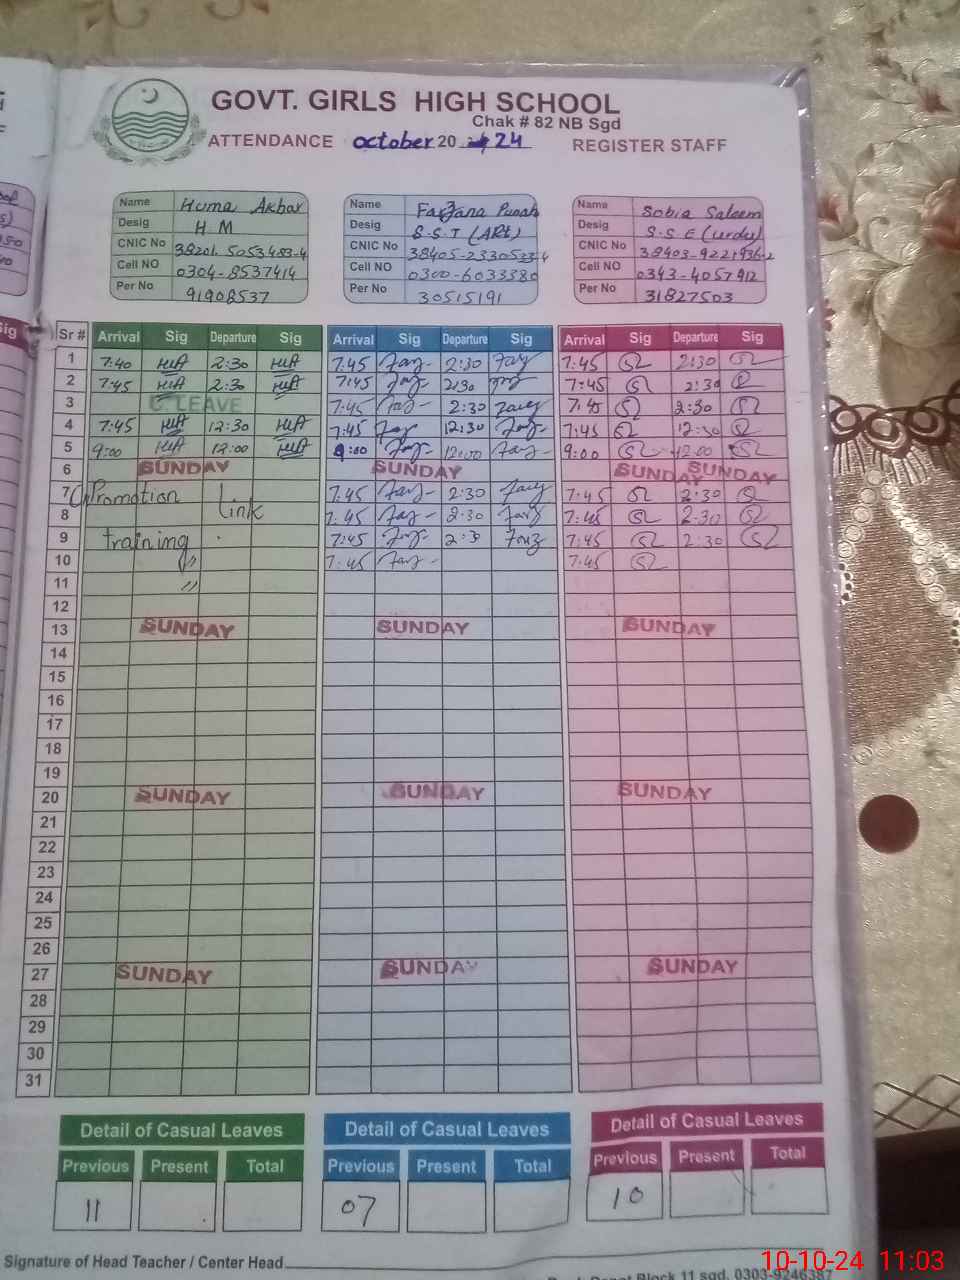 GOVT. GIRLS HIGH SCHOOL
Chak # 82 NB Sgd
ATTENDANCE october 20 24 REGISTER STAFF
Name Huma Akbar
Desig H M
CNIC No 38201.5053483-4
Cell NO 0304-8537414
Per No 91908537
Name Farzana
Desig S.S.T (Art)
CNIC No 38405-2330523-4
Cell NO 0300-6033380
Per No 30515191
Name Sobia Saleem
Desig S.S.E (urdu)
CNIC No 38403-9221936-2
Cell NO 0343-4057912
Per No 31827503
Sr # Arrival Sig Departure Sig Arrival Sig Departure Sig Arrival Sig Departure Sig
1 7:40 HA 2:30 HA 7:45 Fay 2:30 Fay 7:45 2:30
2 7:45 HA 2:30 HA 7:45 Fay 2:30 7:45 2:30
3 C. LEAVE 7:45 Fay 2:30 7:45 2:30
4 7:45 HA 12:30 HA 7:45 Fay 12:30 Fay 7:45 12:30
5 9:00 HA 12:00 HA 9:00 Fay 12:00 Fay 9:00 12:00
6 SUNDAY SUNDAY SUNDAY SUNDAY
7 Promotion Link 7:45 Fay 2:30 7:45 2:30
8 7:45 Fay 2:30 7:45 2:30
9 training 7:45 Fay 2:30 7:45 2:30
10 " 7:45 Fay 7:45
11 "
12
13 SUNDAY SUNDAY SUNDAY
14
15
16
17
18
19
20 SUNDAY SUNDAY SUNDAY
21
22
23
24
25
26
27 SUNDAY SUNDAY SUNDAY
28
29
30
31
Detail of Casual Leaves Detail of Casual Leaves Detail of Casual Leaves
Previous Present Total Previous Present Total Previous Present Total
11 07 10
Signature of Head Teacher / Center Head
Block 11 sgd. 0303-9246387
10-10-24 11:03